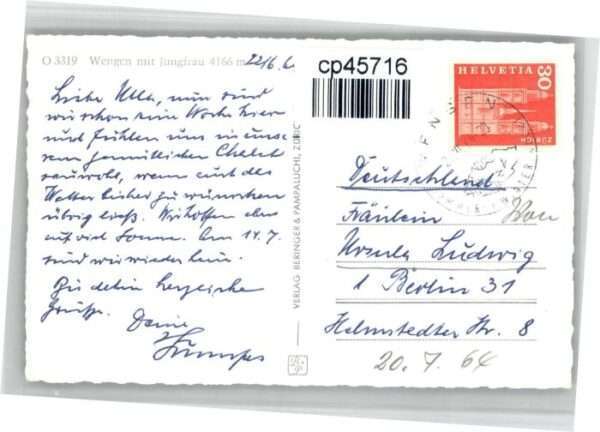 O 3319 Wengen mit Jungfrau 4166 m
22/6. 6
Liebe Ulla, nun sind
wir schon eine Woche hier
und fühlen uns in unse
rem gemütlichen Chalet
sauwohl, wenn auch das
Wetter bisher zu wünschen
übrig ließ. Wir hoffen aber
auf viel Sonne. Am 14.7.
sind wir wieder heim.
Für dich herzliche
Grüsse. Deine
VERLAG BERINGER & PAMPALUCHI, ZÜRICH
cp45716
HELVETIA
30
ZÜRICH
WENGEN
Deutschland
Fräulein
Ursula Ludwig
1 Berlin 31
Helmstedter Str. 8
20. 7. 64